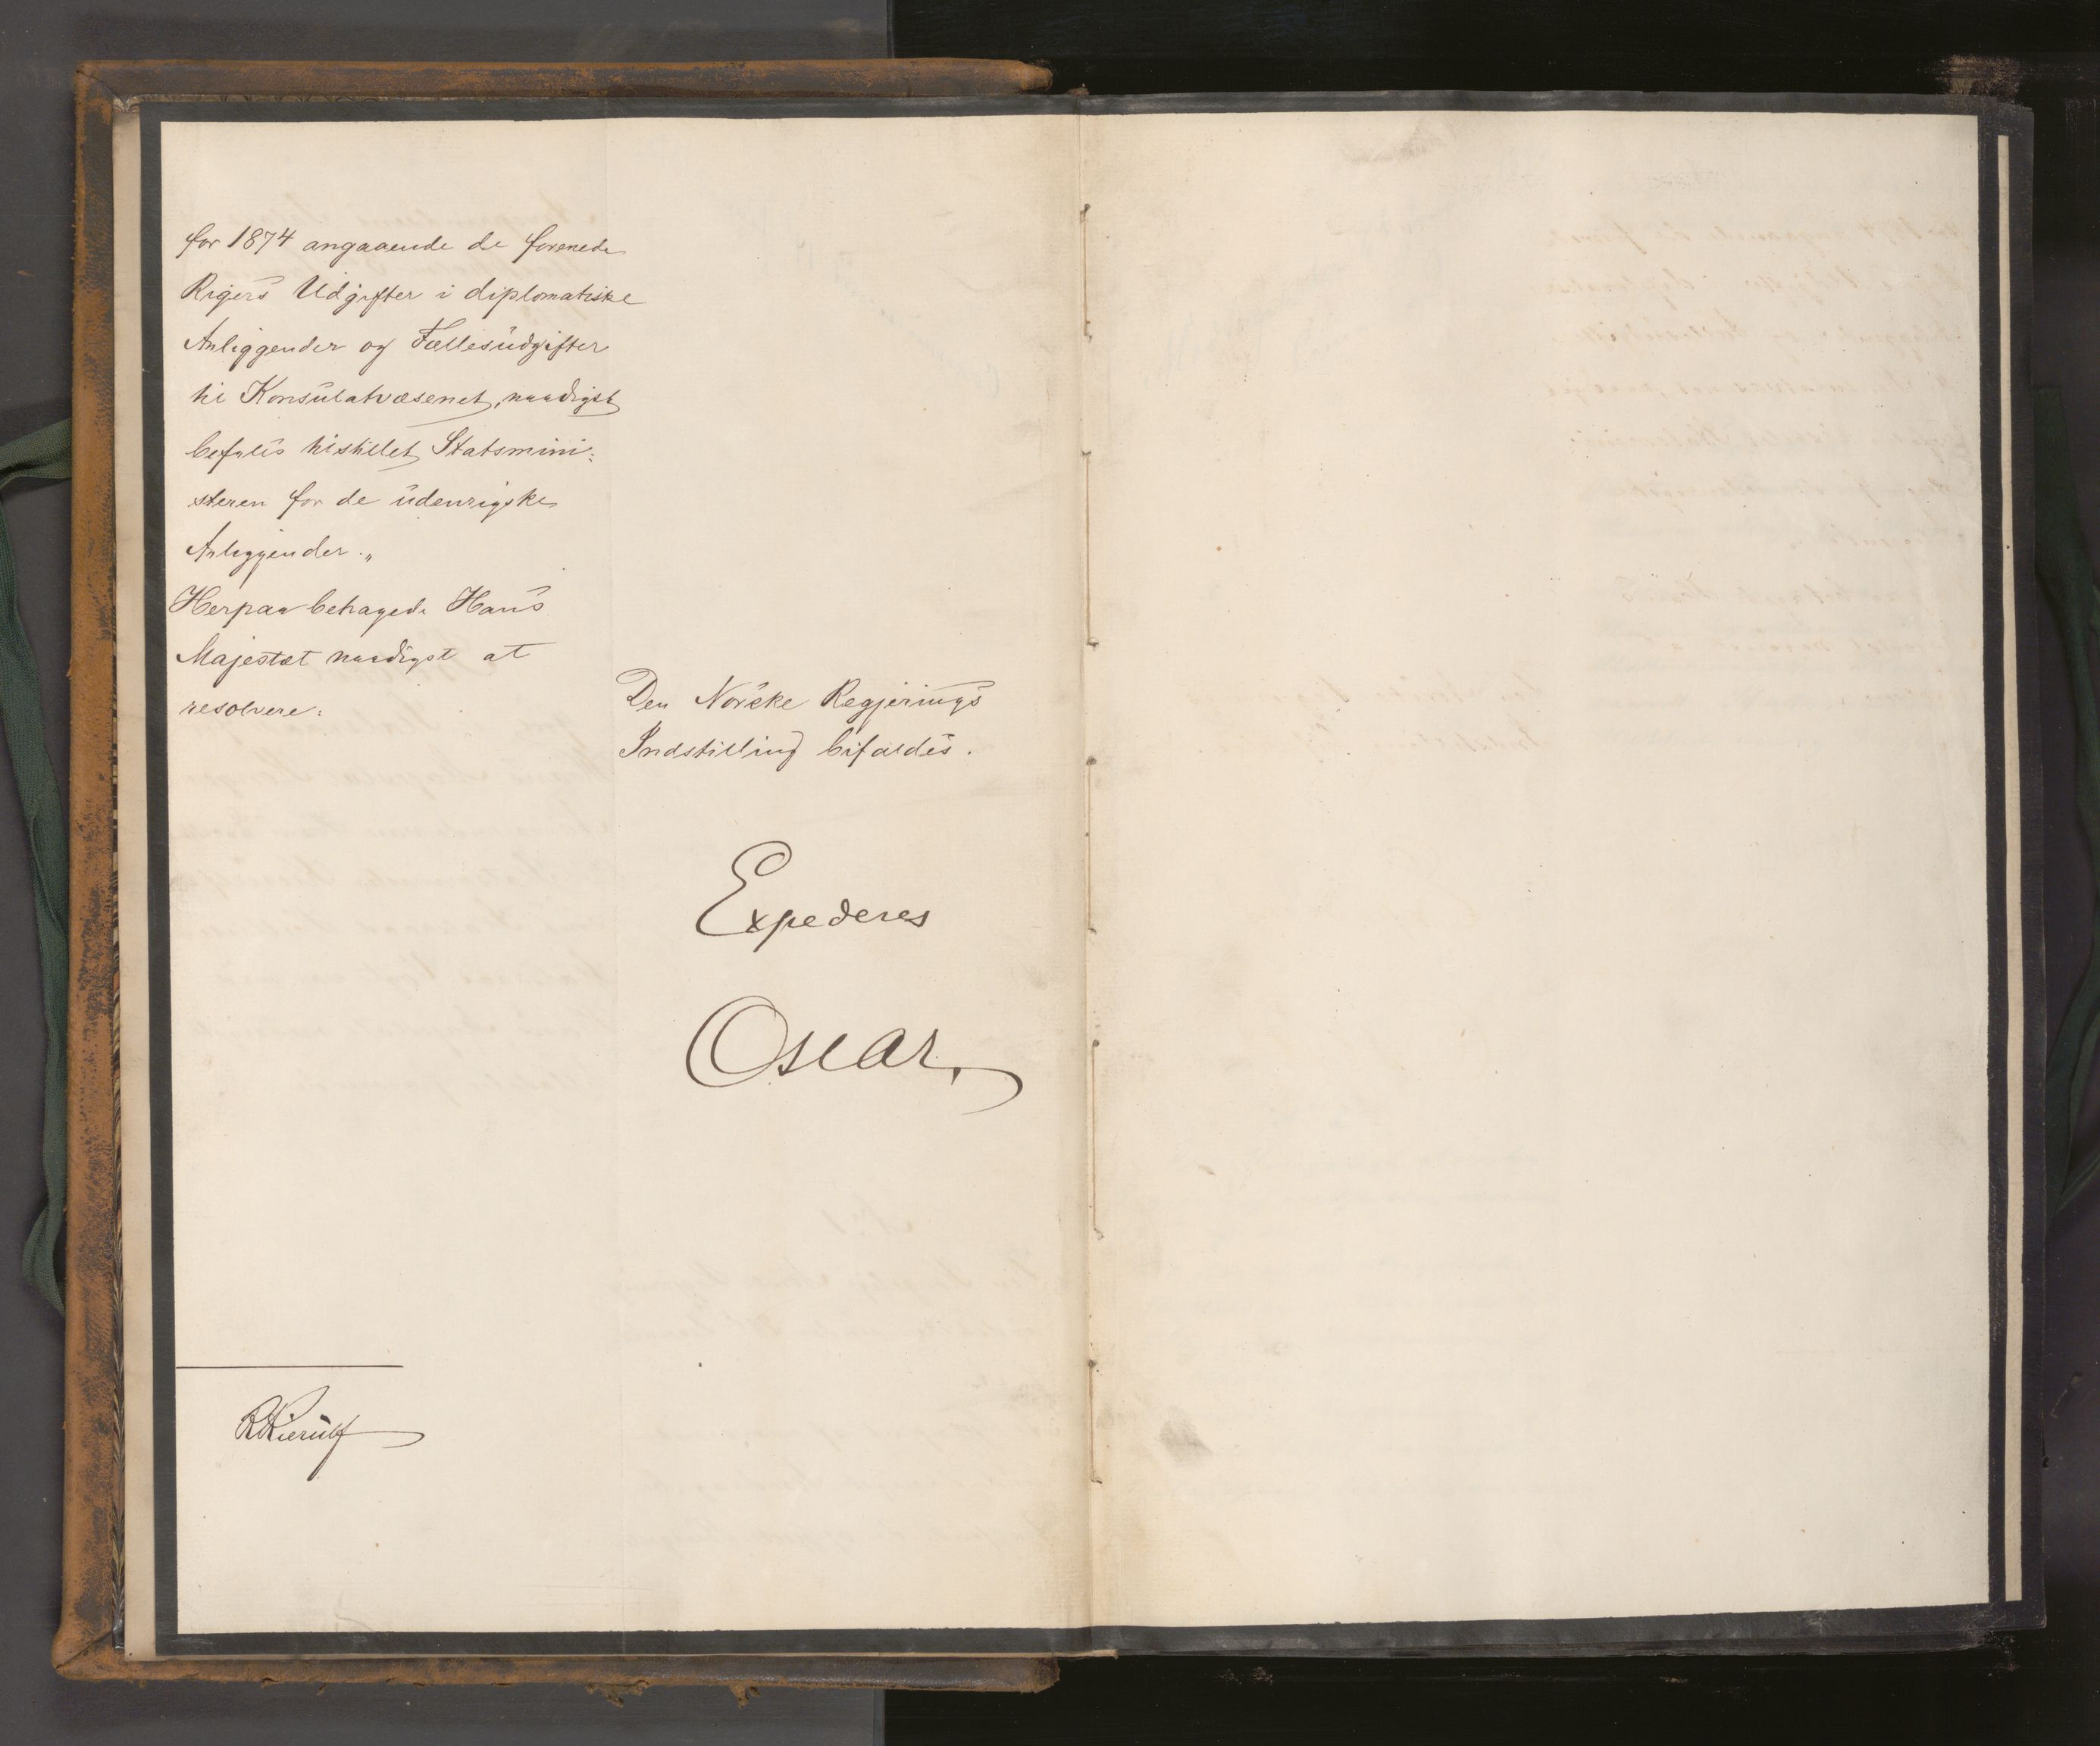 for 1874 angaaende de forenede
Rigers Udgifter i diplomatiske
Anliggender og Fællesudgifter
til Konsulatvæsenet, naadigst
befales tilstillet Statsmini-
steren for de udenrigske
Anliggender."
Herpaa behagede Hans
Majestæt naadigst at
resolvere:
Den Norske Regjerings
Indstilling bifaldes.
Expederes
Oscar.
RKierulf